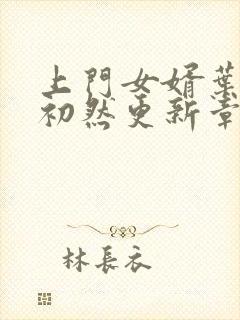 上門女婿葉
初然更新章
林長衣